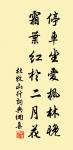 停車坐愛楓林晚
霜葉紅於二月花
杜牧山行詞典網